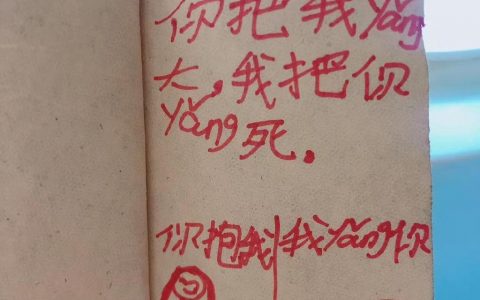 你把我yǎng
大，我把你
yǎng死．
你抱我 我yǎng你